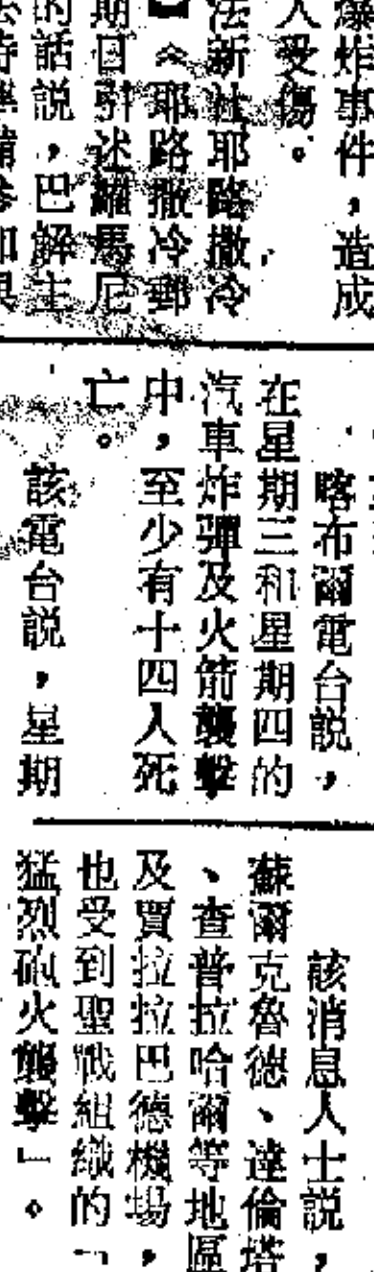 爆炸事件，造成
人受傷。
法新社耶路撒冷
】《耶路撒冷郵
期日引述羅馬尼
的話說，巴解主
喀布爾電台說，
在星期三和星期四的
汽車炸彈及火箭襲擊
中，至少有十四人死
亡。
該電台說，星期
該消息人士說，
蘇爾克魯德、達倫塔
、查普拉哈爾等地區
及賈拉拉巴德機場，
也受到聖戰組織的「
猛烈砲火襲擊」。